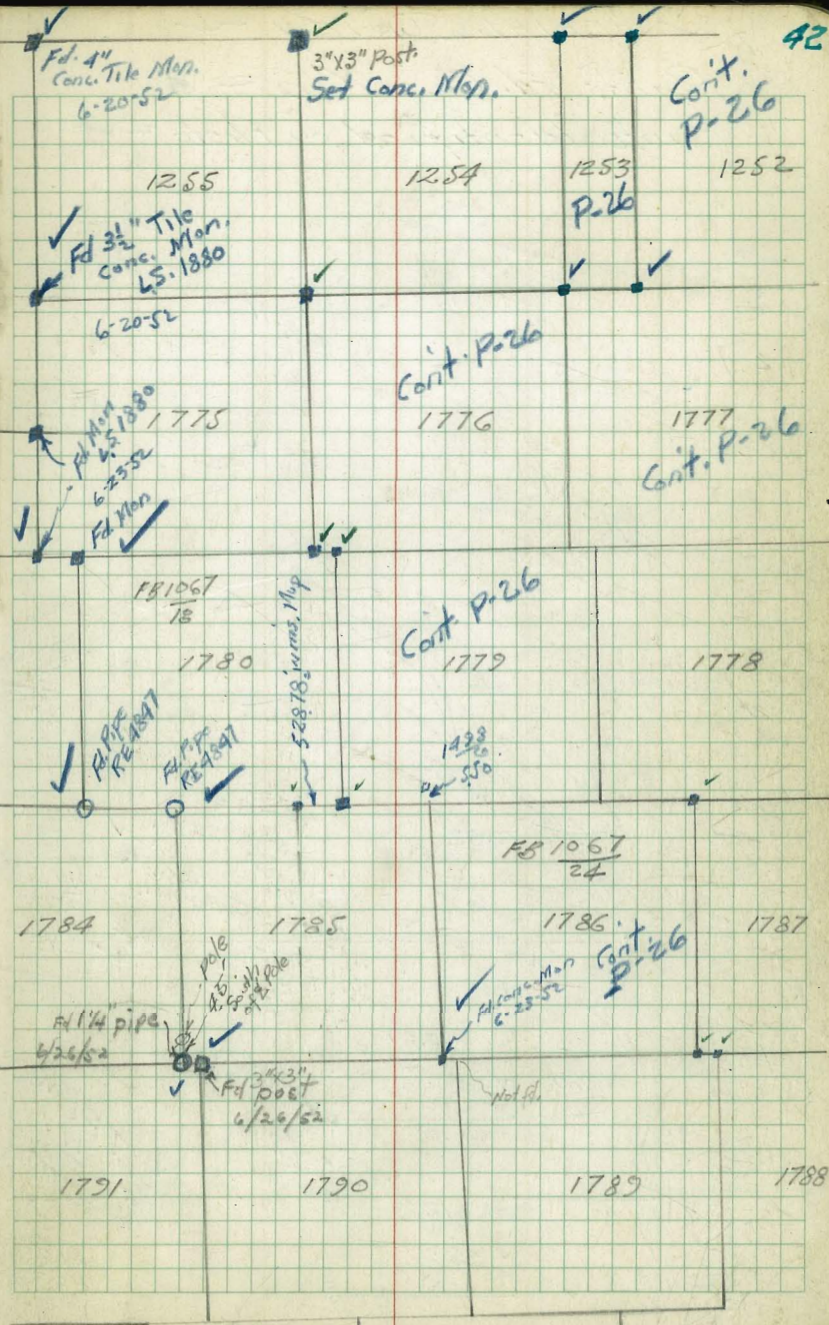 42
Fd. 4"
Conc. Tile Mon.
6-20-52
3"X3" Post.
Set Conc. Mon.
Cont.
P-26
1255
1254
1253
P-26
1252
Fd 3½" Tile
Conc. Mon.
L.S. 1880
6-20-52
Cont. P-26
1775
1776
1777
Cont. P-26
Fd. Mon
L.S. 1880
6-23-52
Fd. Mon
FB 1067
18
1780
528.78
Map
Cont. P-26
1779
1778
Fd. Pipe
RE 4847
Fd. Pipe
RE 4847
550
FB 1067
24
1784
1785
1786
Cont.
P-26
1787
Pole
4.5'
South
of Pole
Fd 1¼" pipe
6/26/52
Fd 3"x3"
post
6/26/52
Fd. Conc. Mon
6-23-52
Not fd.
1791
1790
1789
1788